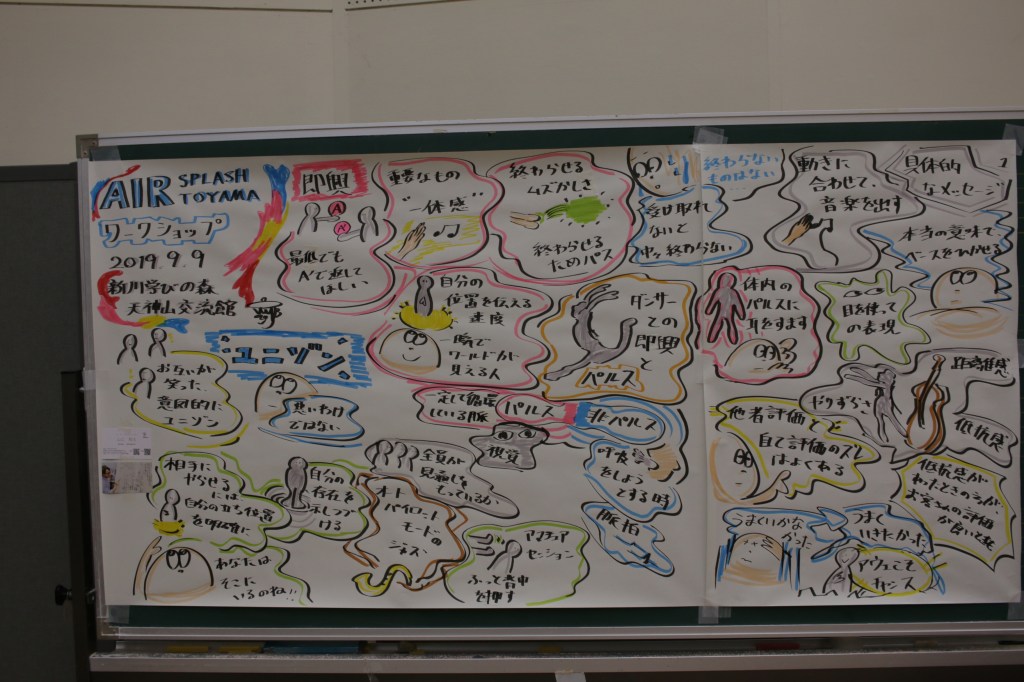 AIR SPLASH
TOYAMA
ワークショップ
2019.9.9
新川学びの森
天神山交流館
即興
A
A'
最低でも
A'で返して
ほしい
重要なもの
一体感
終わらせる
ムズかしさ
終わらせる
ためパス
受け取れ
ないと
終わらない
終わらない
ものはない
動きに
合わせて、
音楽を出す
具体的
なメッセージ
本当の意味で
ベースをひかせる
自分の
位置を伝える
速度
一瞬で
ワールドが
見える人
ダンサー
との
即興と
パルス
体内の
パルスに
耳をすます
目を使って
の表現
お互いが
笑った
意図的に
ユニゾン
"ユニゾン"
悪いわけ
ではない
一定して循環
している脈
パルス
非パルス
視覚
呼吸
をしよう
とする時
脈拍
やりずらさ
距離感
抵抗感
他者評価と
自己評価のズレ
はよくある
抵抗感が
あったときのほうが
お客さんの評価
が良い
相手に
やらせる
には
自分の立ち位置
を明確に
自分の
存在を
示しつづ
ける
全員が
見通しを
もっているか
オート
パイロット
モードの
ジャズ
アマチュア
セッション
ふっと背中
を押す
あなたは
そこに
いるのね!!
うまくいかな
かった
うまく
いきたかった
アウェこそ
チャンス